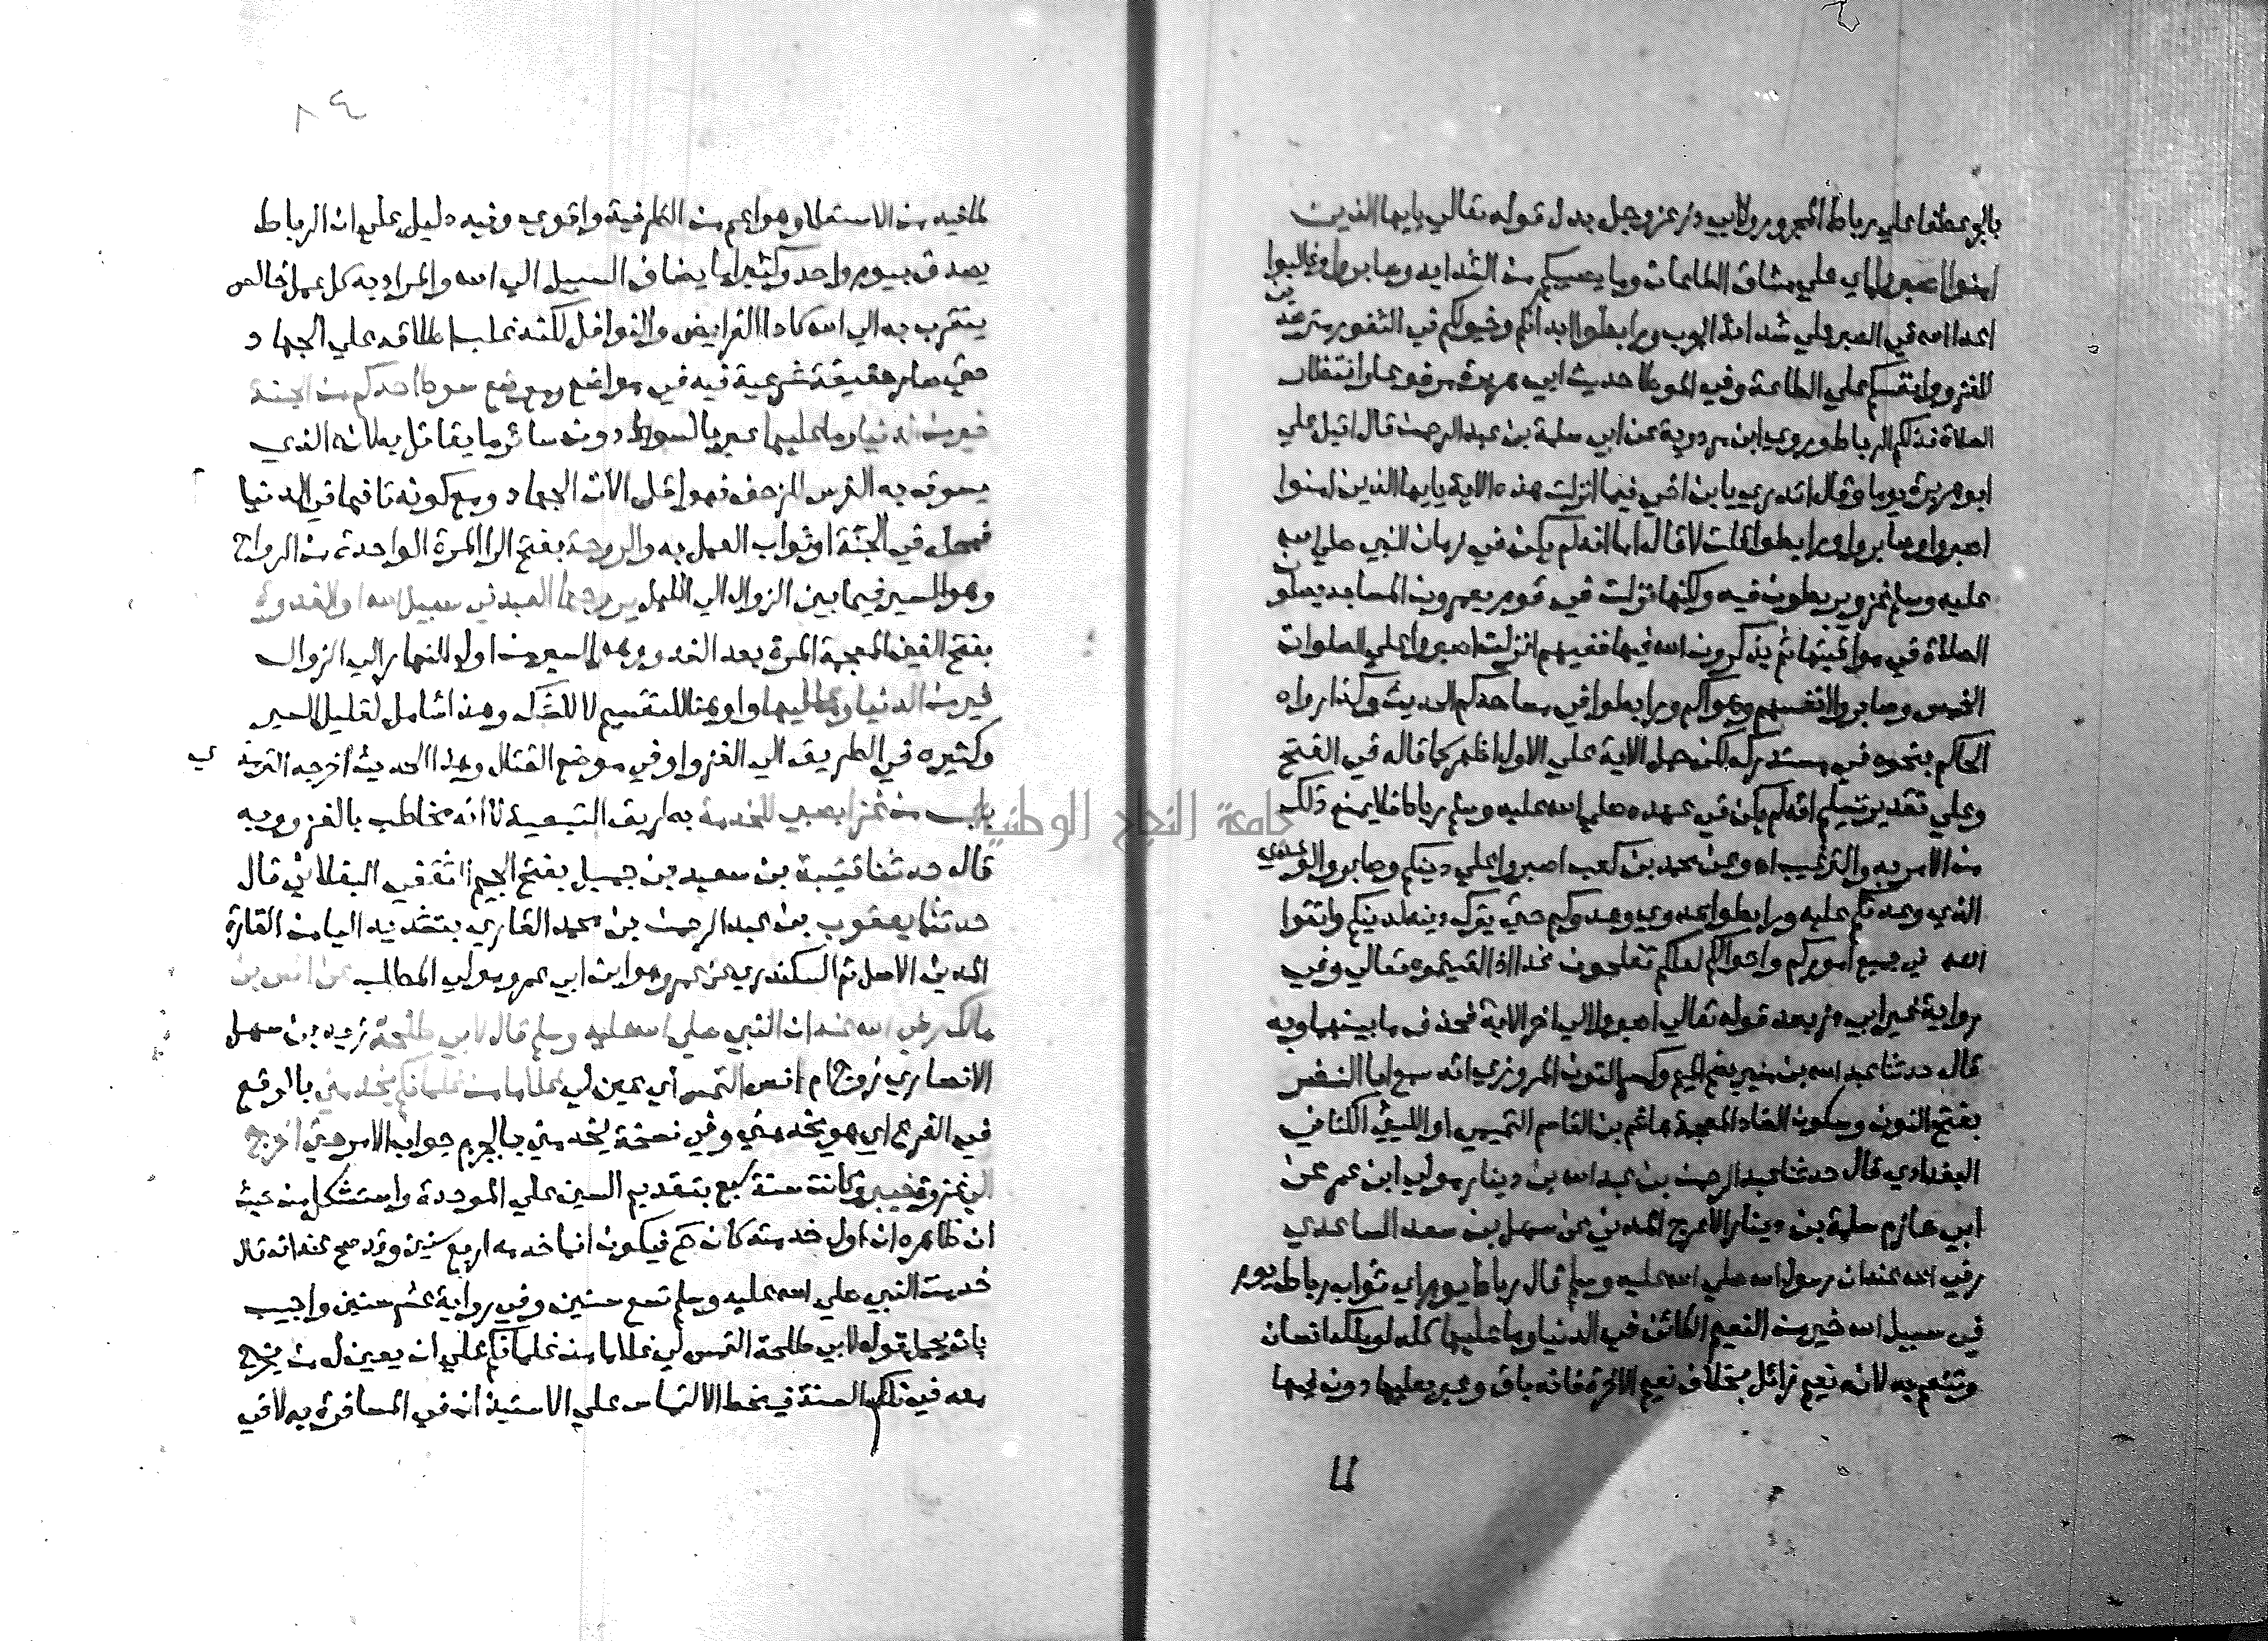 بالجر عطفا علي رباط المجرور ولابي ذر عز وجل بدل قوله تعالي يايها الذين
امنوا اصبروا اي علي مشاق الطاعات وما يصيبكم من الشدايد وصابروا وغالبوا
اعدا الله في الصبر علي شدائد الحرب ورابطوا ابدانكم وخيولكم في الثغور مترصدين
للغزو وانفسكم علي الطاعة وفي الموطا حديث ابي هريرة مرفوعا وانتظار
الصلاة فذلكم الرباط وروي ابن مردوية عن ابي سلمة بن عبد الرحمن قال اقبل علي
ابو هريرة يوما وقال اتدري يا بن اخي فيما انزلت هذه الاية يايها الذين امنوا
اصبروا وصابروا ورابطوا قلت لا قال اما انه لم يكن في زمان النبي صلي الله
عليه وسلم غزو يربطون فيه ولكنها نزلت في قوم يعمرون المساجد يصلون
الصلاة في مواقيتها ثم يذكرون الله فيها ففيهم انزلت اصبروا علي الصلوات
الخمس وصابروا انفسهم وهواكم ورابطوا في مساجدكم الحديث وكذا رواه
الحاكم بنحوه في مستدركه لكن حمل الاية علي الاول اظهر كما قاله في الفتح
وعلي تقدير تسليم انه لم يكن في عهده صلي الله عليه وسلم رباط فلا يمنع ذلك
من الامر به والترغيب اه وعن محمد بن كعب اصبروا علي دينكم وصابروا لوعدي
الذي وعدتكم عليه ورابطوا عدوي وعدوكم حتي يترك دينه لدينكم واتقوا
الله في جميع اموركم واحوالكم لعلكم تفلحون غدا اذا لقيتموه تعالي وفي
رواية غير ابي ذر بعد قوله تعالي اصبروا الي اخر الاية فحذف ما بينهما وبه
قال حدثنا عبد الله بن منير بضم الميم وكسر النون المروزي انه سمع ابا النضر
بفتح النون وسكون الضاد المعجمة هاشم بن القاسم التميمي او الليثي الكناني
البغدادي قال حدثنا عبد الرحمن بن عبد الله بن دينار مولي ابن عمر عن
ابي حازم سلمة بن دينار الاعرج المديني عن سهل بن سعد الساعدي
رضي الله عنه ان رسول الله صلي الله عليه وسلم قال رباط يوم اي ثواب رباط يوم
في سبيل الله خير من النعيم الكائن في الدنيا وما عليها كله لو ملكه انسان
وتنعم به لانه نعيم زائل بخلاف نعيم الاخرة فانه باق وعبر بعليها دون فيها
لما
٨٤
لما فيه من الاستعلا وهو اعم من الظرفية واقوي وفيه دليل علي ان الرباط
يصدق بيوم واحد وكثيرا ما يضاف السبيل الي الله والمراد به كل عمل خالص
يتقرب به الي الله كاداا الفرايض والنوافل لكنه غلب اطلاقه علي الجهاد
حتي صار حقيقة شرعية فيه في مواضع وموضع سوط احدكم من الجنة
خير من الدنيا وما عليها عبر بالسوط دون سائر ما يقاتل به لانه الذي
يسوق به الفرس للزحف فهو اقل الات الجهاد ومع كونه تافها في الدنيا
فمحله في الجنة او ثواب العمل به والروحة بفتح الرا المرة الواحدة من الرواح
وهو السير فيما بين الزوال الي الليل يروحها العبد في سبيل الله او الغدوة
بفتح الغين المعجمة المرة بعد الغدو وهو السير من اول النهار الي الزوال
خير من الدنيا وما عليها واو هنا للتقسيم لا للشك وهذا شامل لقليل السير
وكثيره في الطريق الي الغزو او في موضع القتال وهذا الحديث اخرجه الترمذي
باب من غزا بصبي للخدمة بطريق التبعية لا انه مخاطب بالغزو وبه
قال حدثنا قتيبة بن سعيد بن جميل بفتح الجيم الثقفي البغلاني قال
حدثنا يعقوب بن عبد الرحمن بن محمد القاري بتشديد اليا من القارة
المدني الاصل ثم السكندري عن عمرو هو ابن ابي عمرو مولي المطلب عن انس بن
مالك رضي الله عنه ان النبي صلي الله عليه وسلم قال لابي طلحة زيد بن سهل
الانصاري زوج ام انس التمس اي عين لي غلاما من غلمانكم يخدمني بالرفع
في الفرع اي هو يخدمني وفي نسخة يخدمني بالجزم جواب الامر حتي اخرج
الي غزوة خيبر وكانت سنة سبع بتقديم السين علي الموحدة واستشكل من حيث
ان ظاهره ان اول خدمته كان ح فيكون انما خدمه اربع سنين وقد صح عنه انه قال
خدمت النبي صلي الله عليه وسلم تسع سنين وفي رواية عشر سنين واجيب
بانه يحمل قوله لابي طلحة التمس لي غلاما من غلمانكم علي ان يعين له من يخرج
معه في تلك السنة فينحط الالتماس علي الاستيذان في المسافرة به لا في